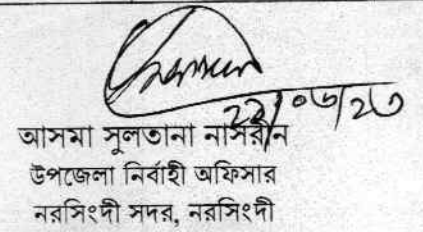 আসমা সুলতানা নাসরীন
উপজেলা নির্বাহী অফিসার
নরসিংদী সদর, নরসিংদী